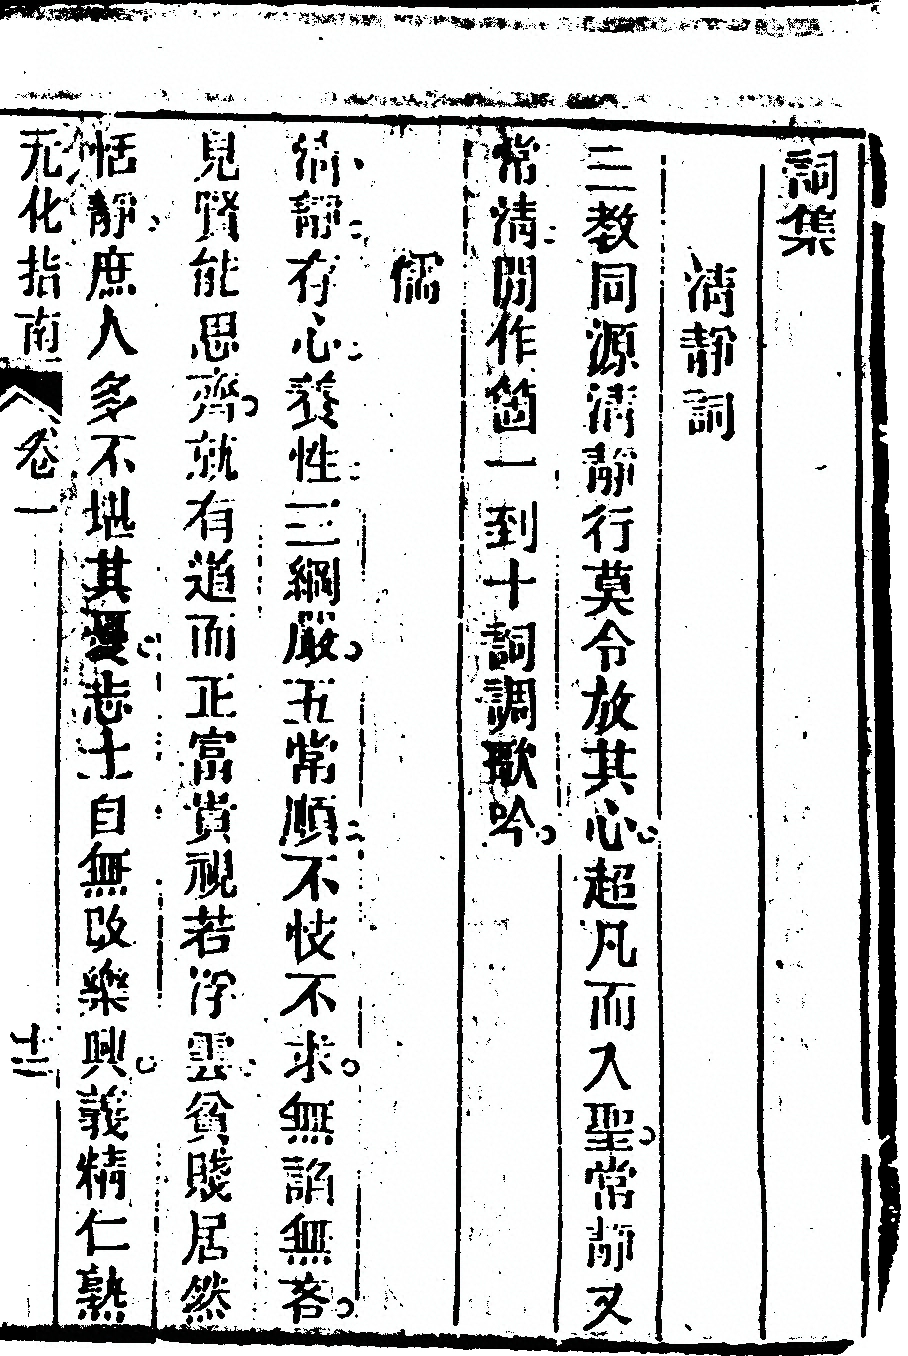 詞集
清靜詞
三教同源清靜行莫令放其心超凡而入聖常靜又
常清閒作箇一到十詞調歌吟
儒
清靜存心養性三綱嚴五常順不忮不求無諂無吝
見賢能思齊就有道而正富貴視若浮雲貧賤居然
恬靜庶人多不堪其憂志士自無改樂興義精仁熟
无化指南 卷一 十二